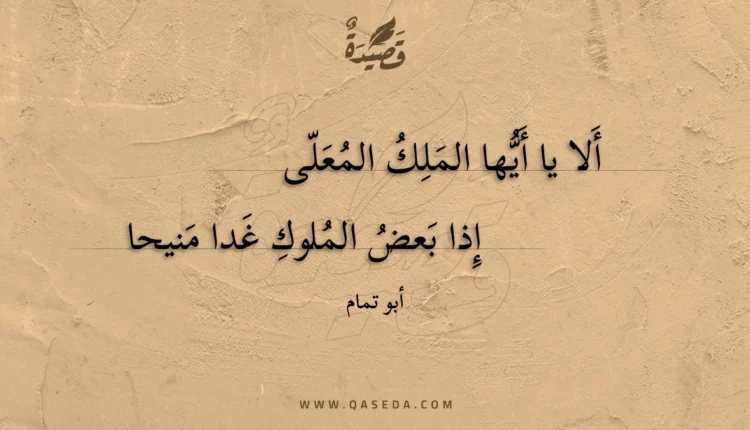 قَصِيدَةٌ
أَلا يا أَيُّها المَلِكُ المُعَلّى
إِذا بَعضُ المُلوكِ غَدا مَنيحا
أبو تمام
WWW.QASEDA.COM